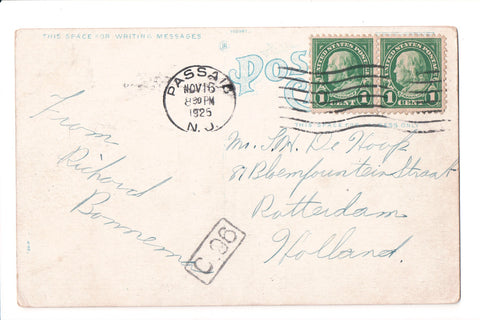 THIS SPACE FOR WRITING MESSAGES
Pos
C
PASSAIC
NOV 16
8 30 PM
1925
N. J.
UNITED STATES POSTAGE
1 CENT 1
UNITED STATES POSTAGE
1 CENT 1
THIS SPACE FOR
From
Richard
Bonnema
Mr. De Hoop
81 Bloemfonteinstraat
Rotterdam
Holland.
C.96